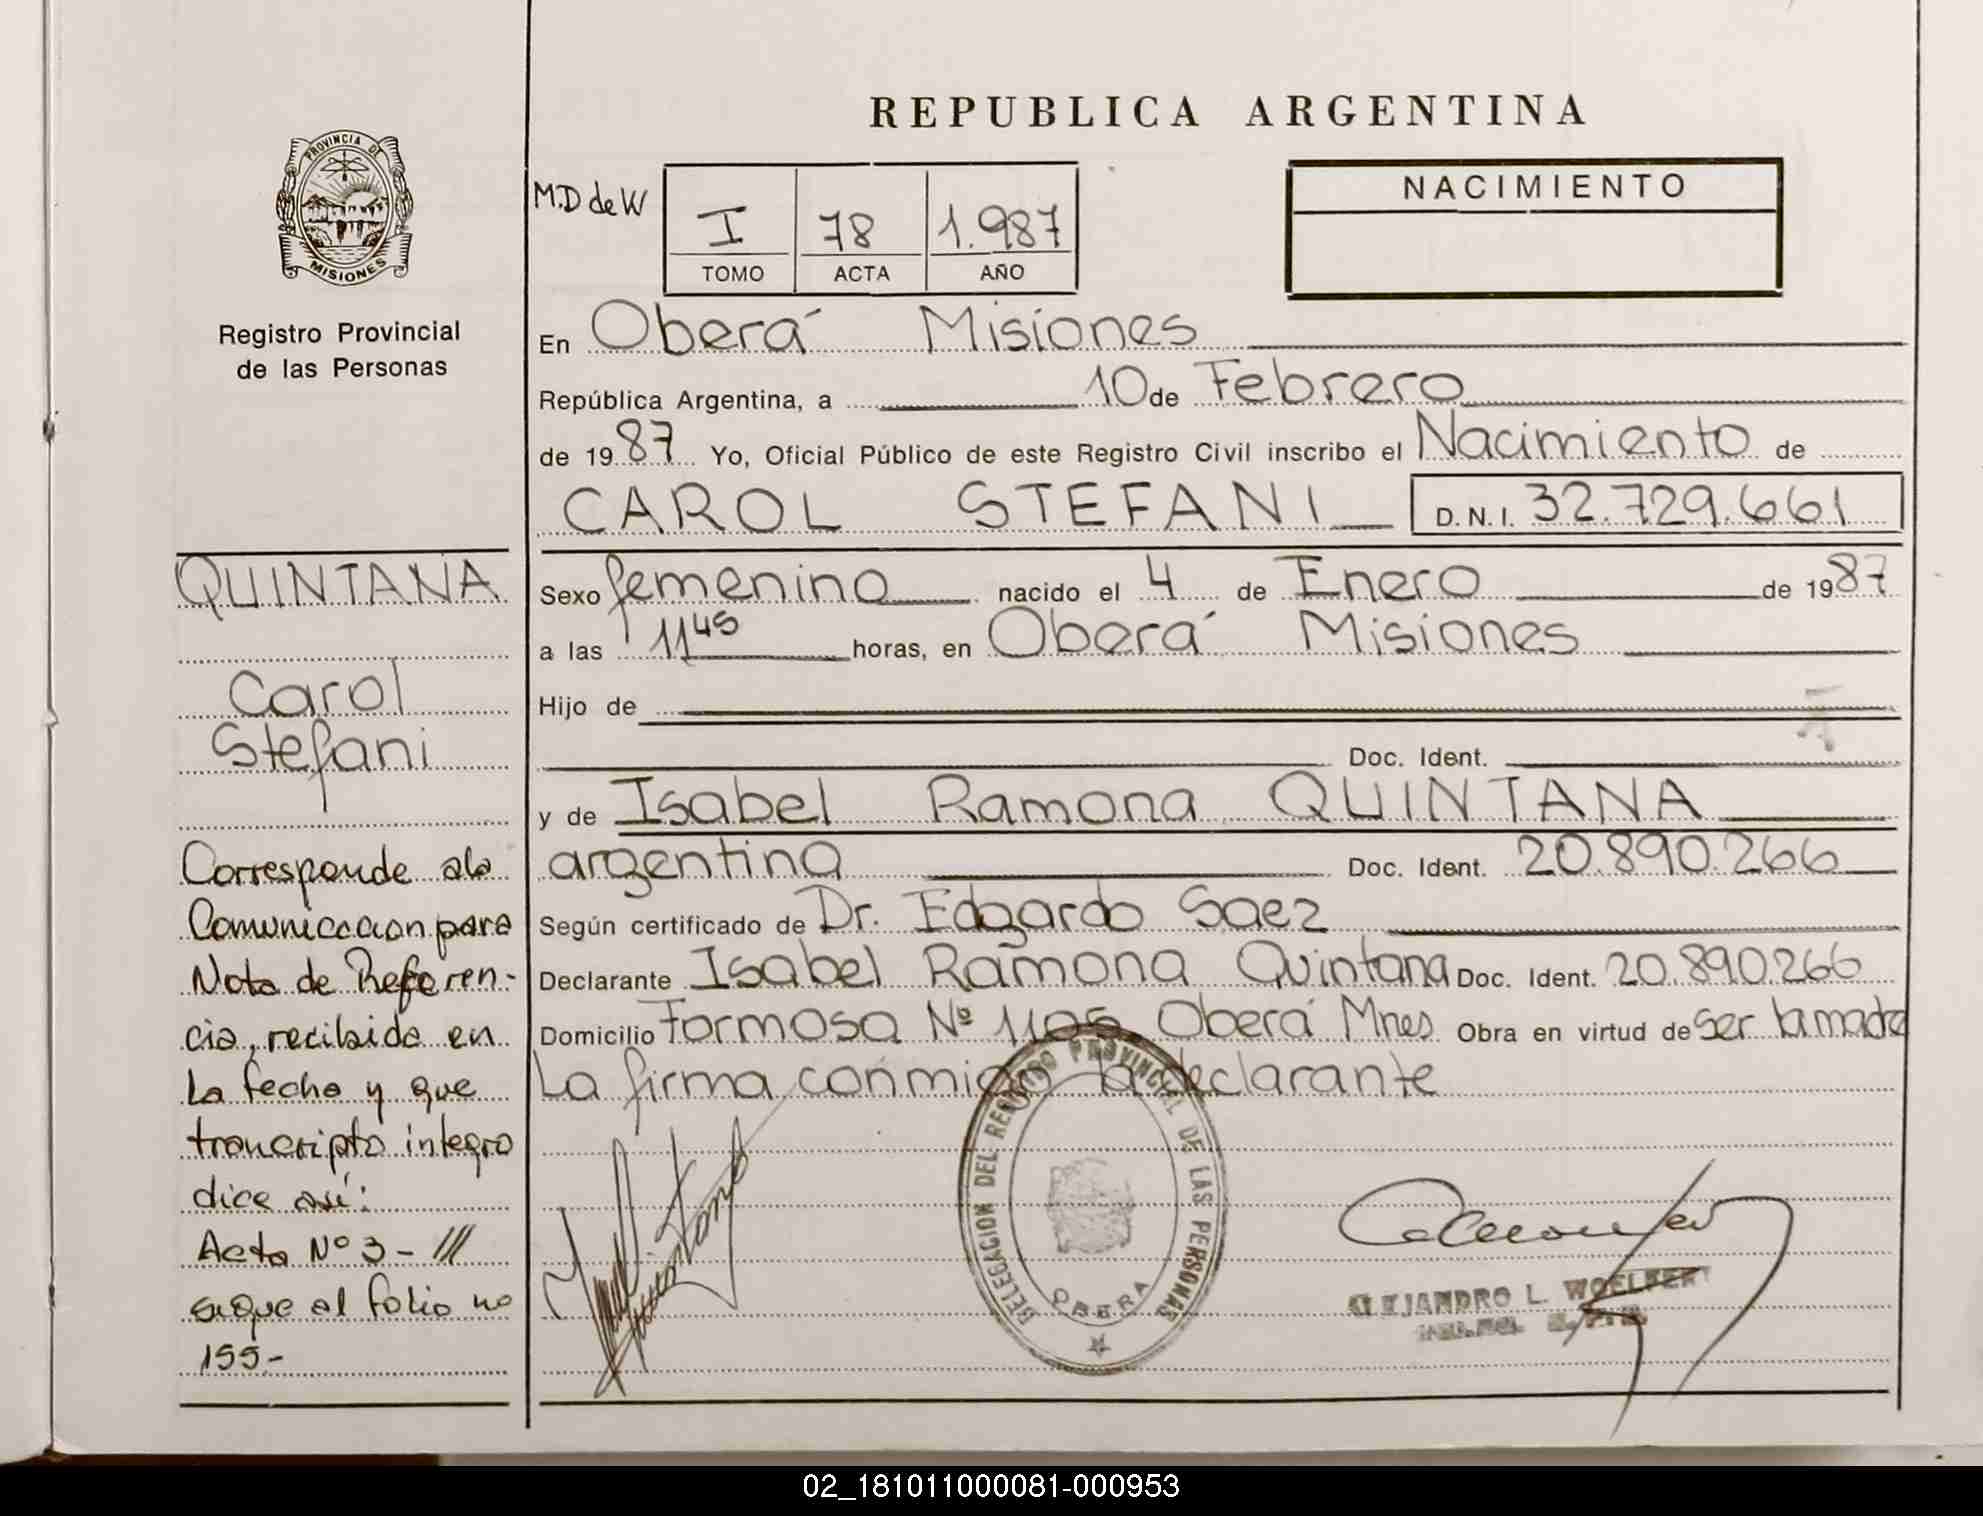 REPUBLICA ARGENTINA
PROVINCIA DE
MISIONES
Registro Provincial
de las Personas
M.D de W
I 78 1.987
TOMO ACTA AÑO
NACIMIENTO
En Oberá Misiones
República Argentina, a 10 de Febrero
de 1987 Yo, Oficial Público de este Registro Civil inscribo el Nacimiento de
CAROL STEFANI D.N.I. 32.729.661
QUINTANA
Carol
Stefani
Sexo femenino nacido el 4 de Enero de 1987
a las 11 45 horas, en Oberá Misiones
Hijo de
Doc. Ident.
y de Isabel Ramona QUINTANA
argentina Doc. Ident. 20.890.266
Según certificado de Dr. Edgardo Saez
Declarante Isabel Ramona Quintana Doc. Ident. 20.890.266
Domicilio Formosa Nº 1105 Oberá Mnes Obra en virtud de Ser la madre
La firma conmigo la declarante
Corresponde ala
Comunicacion para
Nota de Referen-
cia, recibida en
La fecha y que
transcripto integro
dice así:
Acta Nº 3 - ///
sigue al folio no
155-
DELEGACION DEL REGISTRO PROVINCIAL DE LAS PERSONAS
OBERA
ALEJANDRO L. WOELFERT
02_181011000081-000953